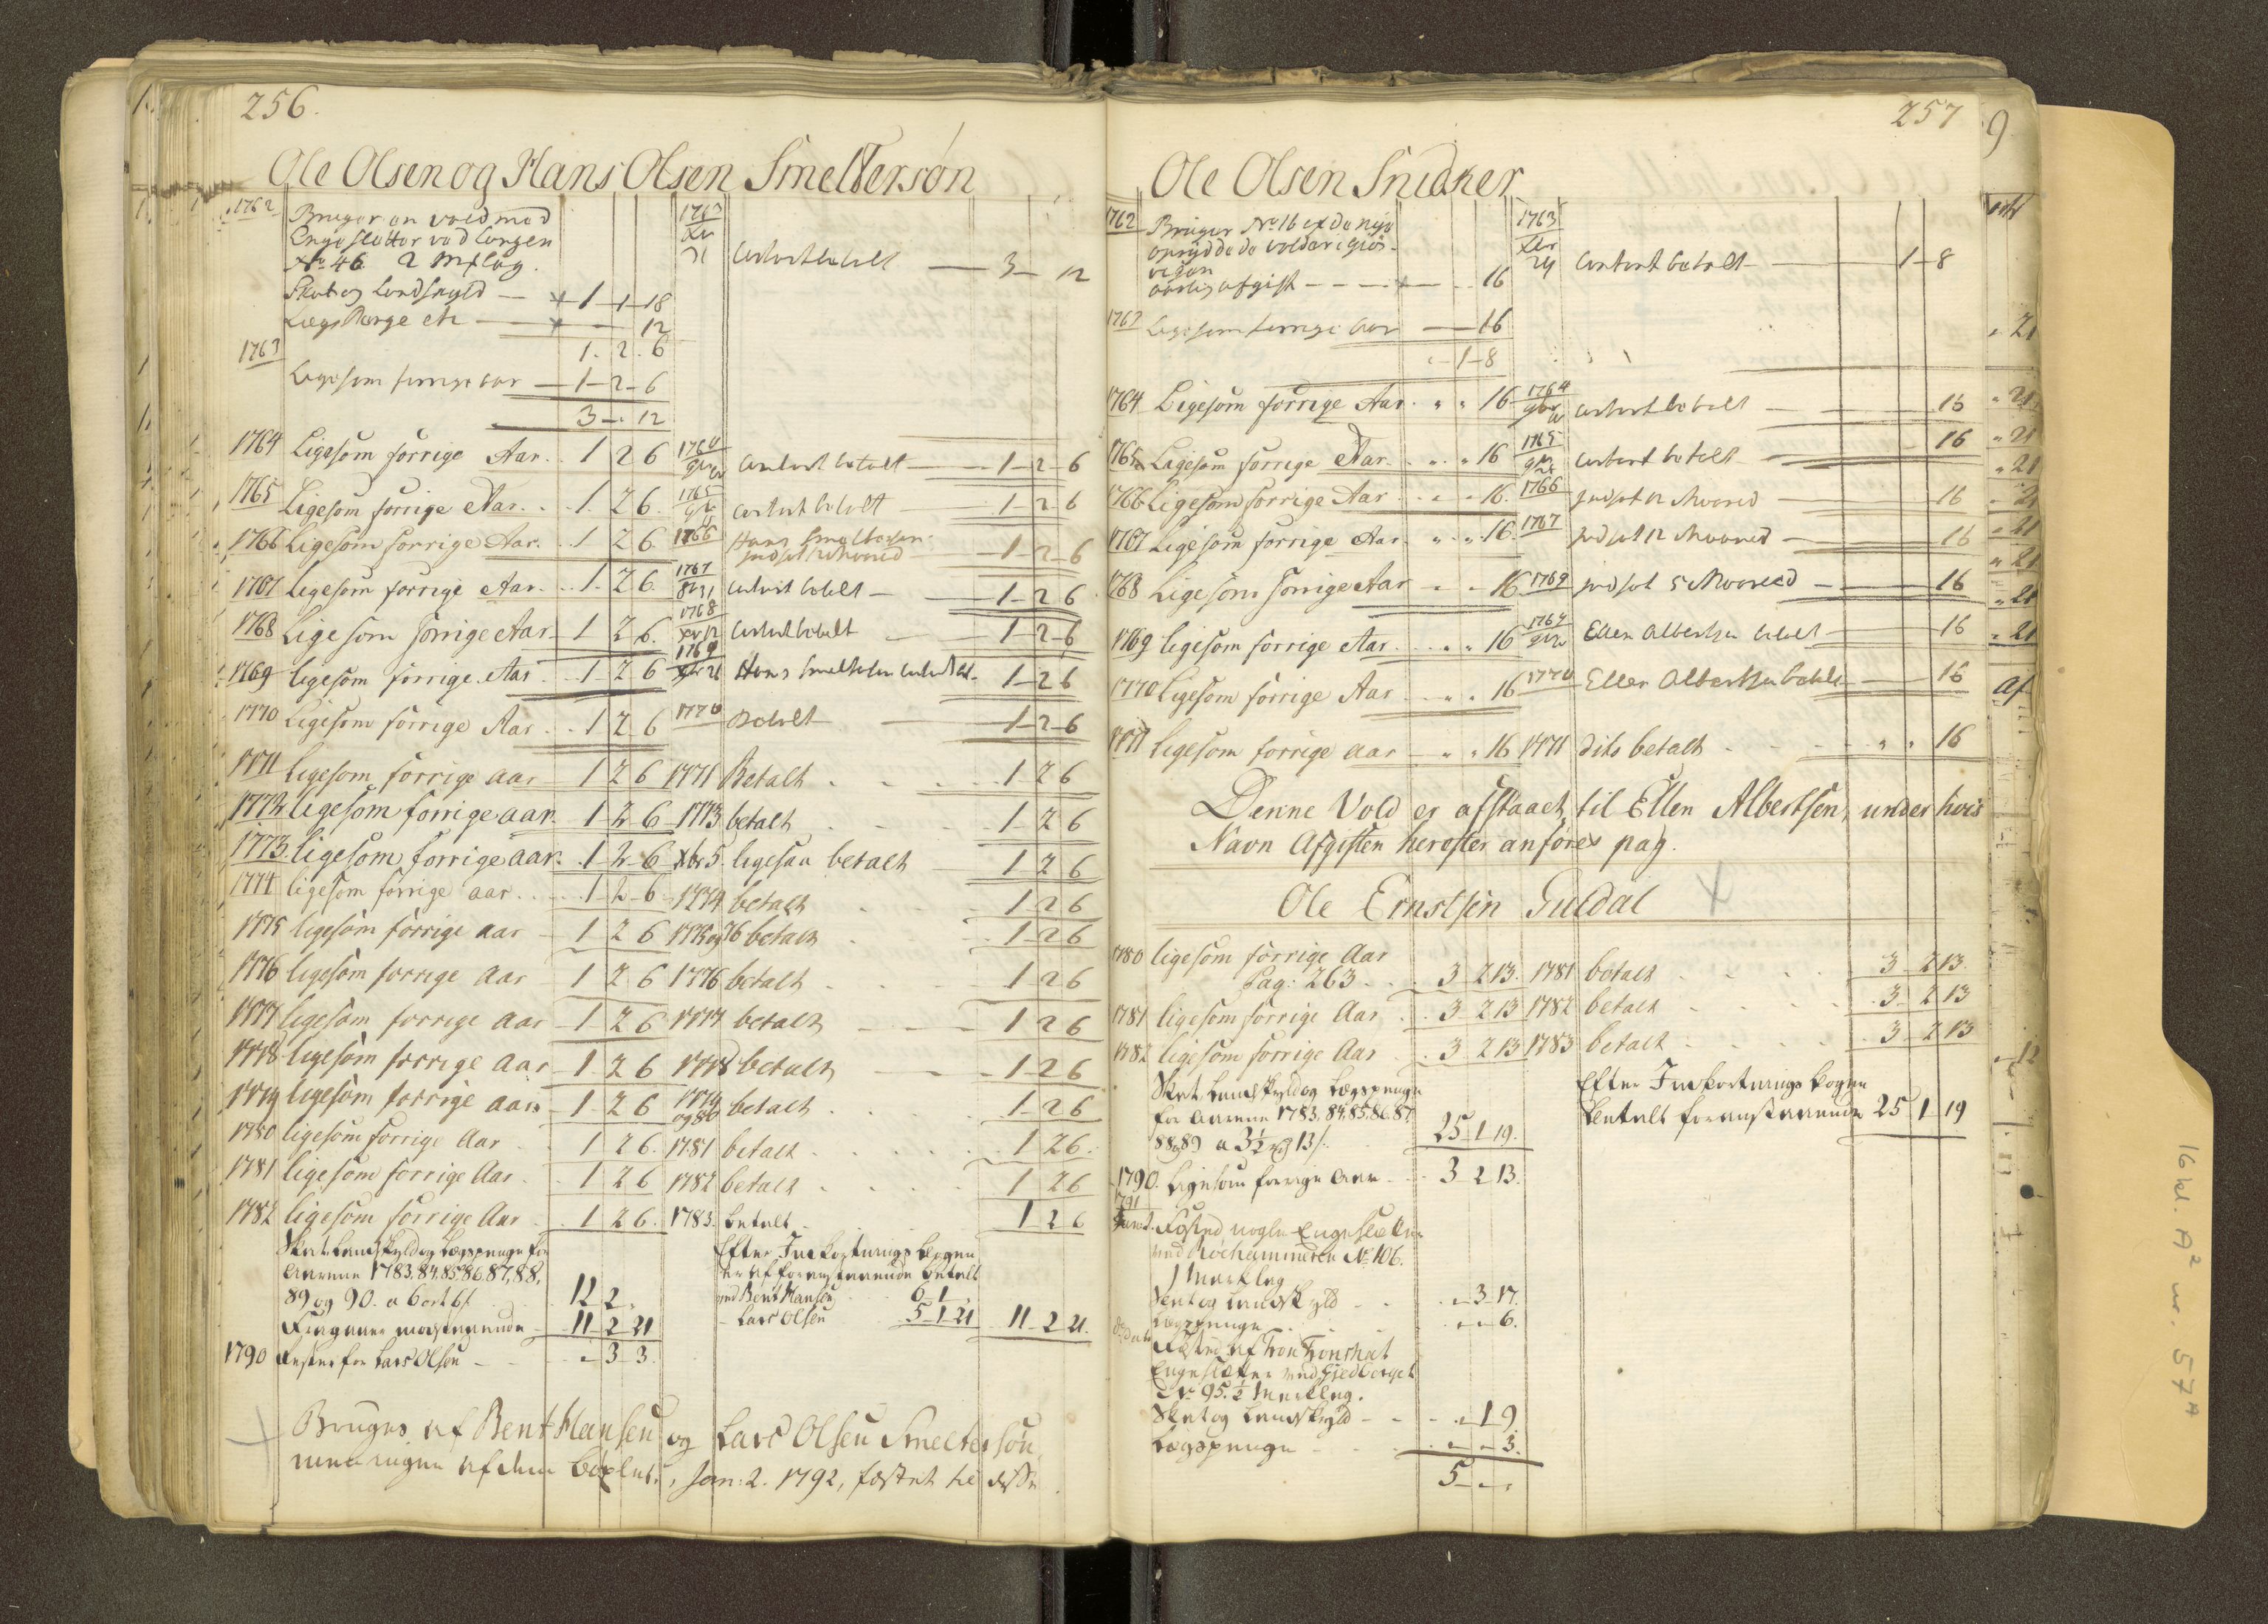 256.
Ole Olsen og Hans Olsen Smeltersøn
1762 Bruger en vold med
Engesletter ved
No 46 2 Mklag.
Skat og Landskyld 1 1 18
12
1. 2. 6
1763 Ligesom forrige aar 1 2 6
3 - 12
1763 Xbr 21 contant betalt 3 - 12
1764 Ligesom forrige Aar. 1 2 6 1764 contant betalt 1 2 6
1765 Ligesom forrige Aar. 1. 2 6. 1765 contant betalt 1 2 6
1766 Ligesom forrige Aar. 1 2 6 1766 Hans Smeltersøn
1 2 6
1767 Ligesom forrige Aar. 1. 2 6. 1767 contant betalt 1 2 6
1768 Lige som forrige Aar 1 2 6. 1768 contant betalt 1 2 6
1769 ligesom forrige Aar 1 2 6 1769 Hans 1 2 6
1770 Ligesom forrige Aar 1 2 6 1770 Betalt 1 2 6
1771 ligesom forrige aar 1 2 6 1771 Betalt 1 2 6
1772 ligesom forrige aar. 1 2 6 1773 betalt 1 2 6
1773. ligesom forrige aar. 1 2 6 Xbr 5. ligesaa betalt 1 2 6
1774 ligesom forrige aar 1 2 6 1774 betalt 1 2 6
1775 ligesom forrige aar 1 2 6 1775 og 76 betalt 1 2 6
1776 ligesom forrige aar 1 2 6 1776 betalt 1 2 6
1777 ligesom forrige aar 1 2 6 1777 betalt 1 2 6
1778 ligesom forrige aar 1 2 6 1778 betalt 1 2 6
1779 ligesom forrige aar 1 2 6 1779 og 80 betalt 1 2 6
1780 ligesom forrige Aar 1 2 6. 1781 betalt 1 2 6.
1781 ligesom forrige Aar 1 2 6 1782 betalt 1 2 6
1782 ligesom forrige Aar 1 2 6. 1783. betalt 1 2 6
Skat Landskyld og Lægspenge for
Aarene 1783, 84, 85, 86, 87, 88,
89 og 90. a 6 ort 6 s 12 2 "
11 2 21
1790 Rester for Lars Olsen " 3 3.
Efter Indkortnings Bogen
er af foranstaaende betalt
ved Bent Hansen 6 1 "
- Lars Olsen 5 1 21 11 2 21.
Bruges af Bent Hansen og Lars Olsen Smeltersøn,
Jan: 2. 1792, fæstet til
257
Ole Olsen Snidker
1762 Bruger No 16 af de nye
opryddede volder i
aarlig afgift 16
1763 Xbr 24 contant betalt 1 - 8
1763 Ligesom forrige aar 16
1 - 8
1764 Ligesom forrige Aar. " " 16 1764 contant betalt 16
1765 Ligesom forrige Aar. " " 16 1765 contant betalt 16
1766 Ligesom forrige Aar " " 16. 1766 16
1767 Ligesom forrige Aar. " " 16. 1767 16
1768 Ligesom forrige Aar " " 16 1769 16
1769 ligesom forrige Aar. " " 16 1769 Ellen Albertsen betalt 16
1770 Ligesom forrige Aar " " 16 1770 Ellen Albertsen betalt 16
1771 ligesom forrige aar " " 16 1771 dito betalt " " 16
Denne Vold er afstaaet til Ellen Albertsen, under hvis
Navn Afgiften herefter anføres pag.
Ole Ernstsen Guldal
1780 ligesom forrige Aar
Pag: 263 3 2 13. 1781 betalt 3 2 13.
1781 ligesom forrige Aar 3 2 13 1782 betalt 3 2 13
1782 ligesom forrige Aar 3 2 13 1783 betalt 3 2 13
Skat, Landskyld og Lægspenge
for Aarene 1783, 84, 85, 86, 87,
88, 89 a 3½ rd 13 s. 25 1 19.
Efter Indkortnings bogen
betalt foranstaaende 25 1 19
1790. Ligesom forrige Aar 3 2 13.
1791 Fæsted nogle Engesletter
ved Röehammeren No 106.
1 Marklag
Skat og Landskyld " 3 17.
Lægspenge " " 6.
Fæsted af
Engesletter ved
No 95. ½ Marklag.
Skat og Landskyld " 1 9.
Lægspenge " " 3.
5 " "
16 kl. A² nr. 57ᴬ